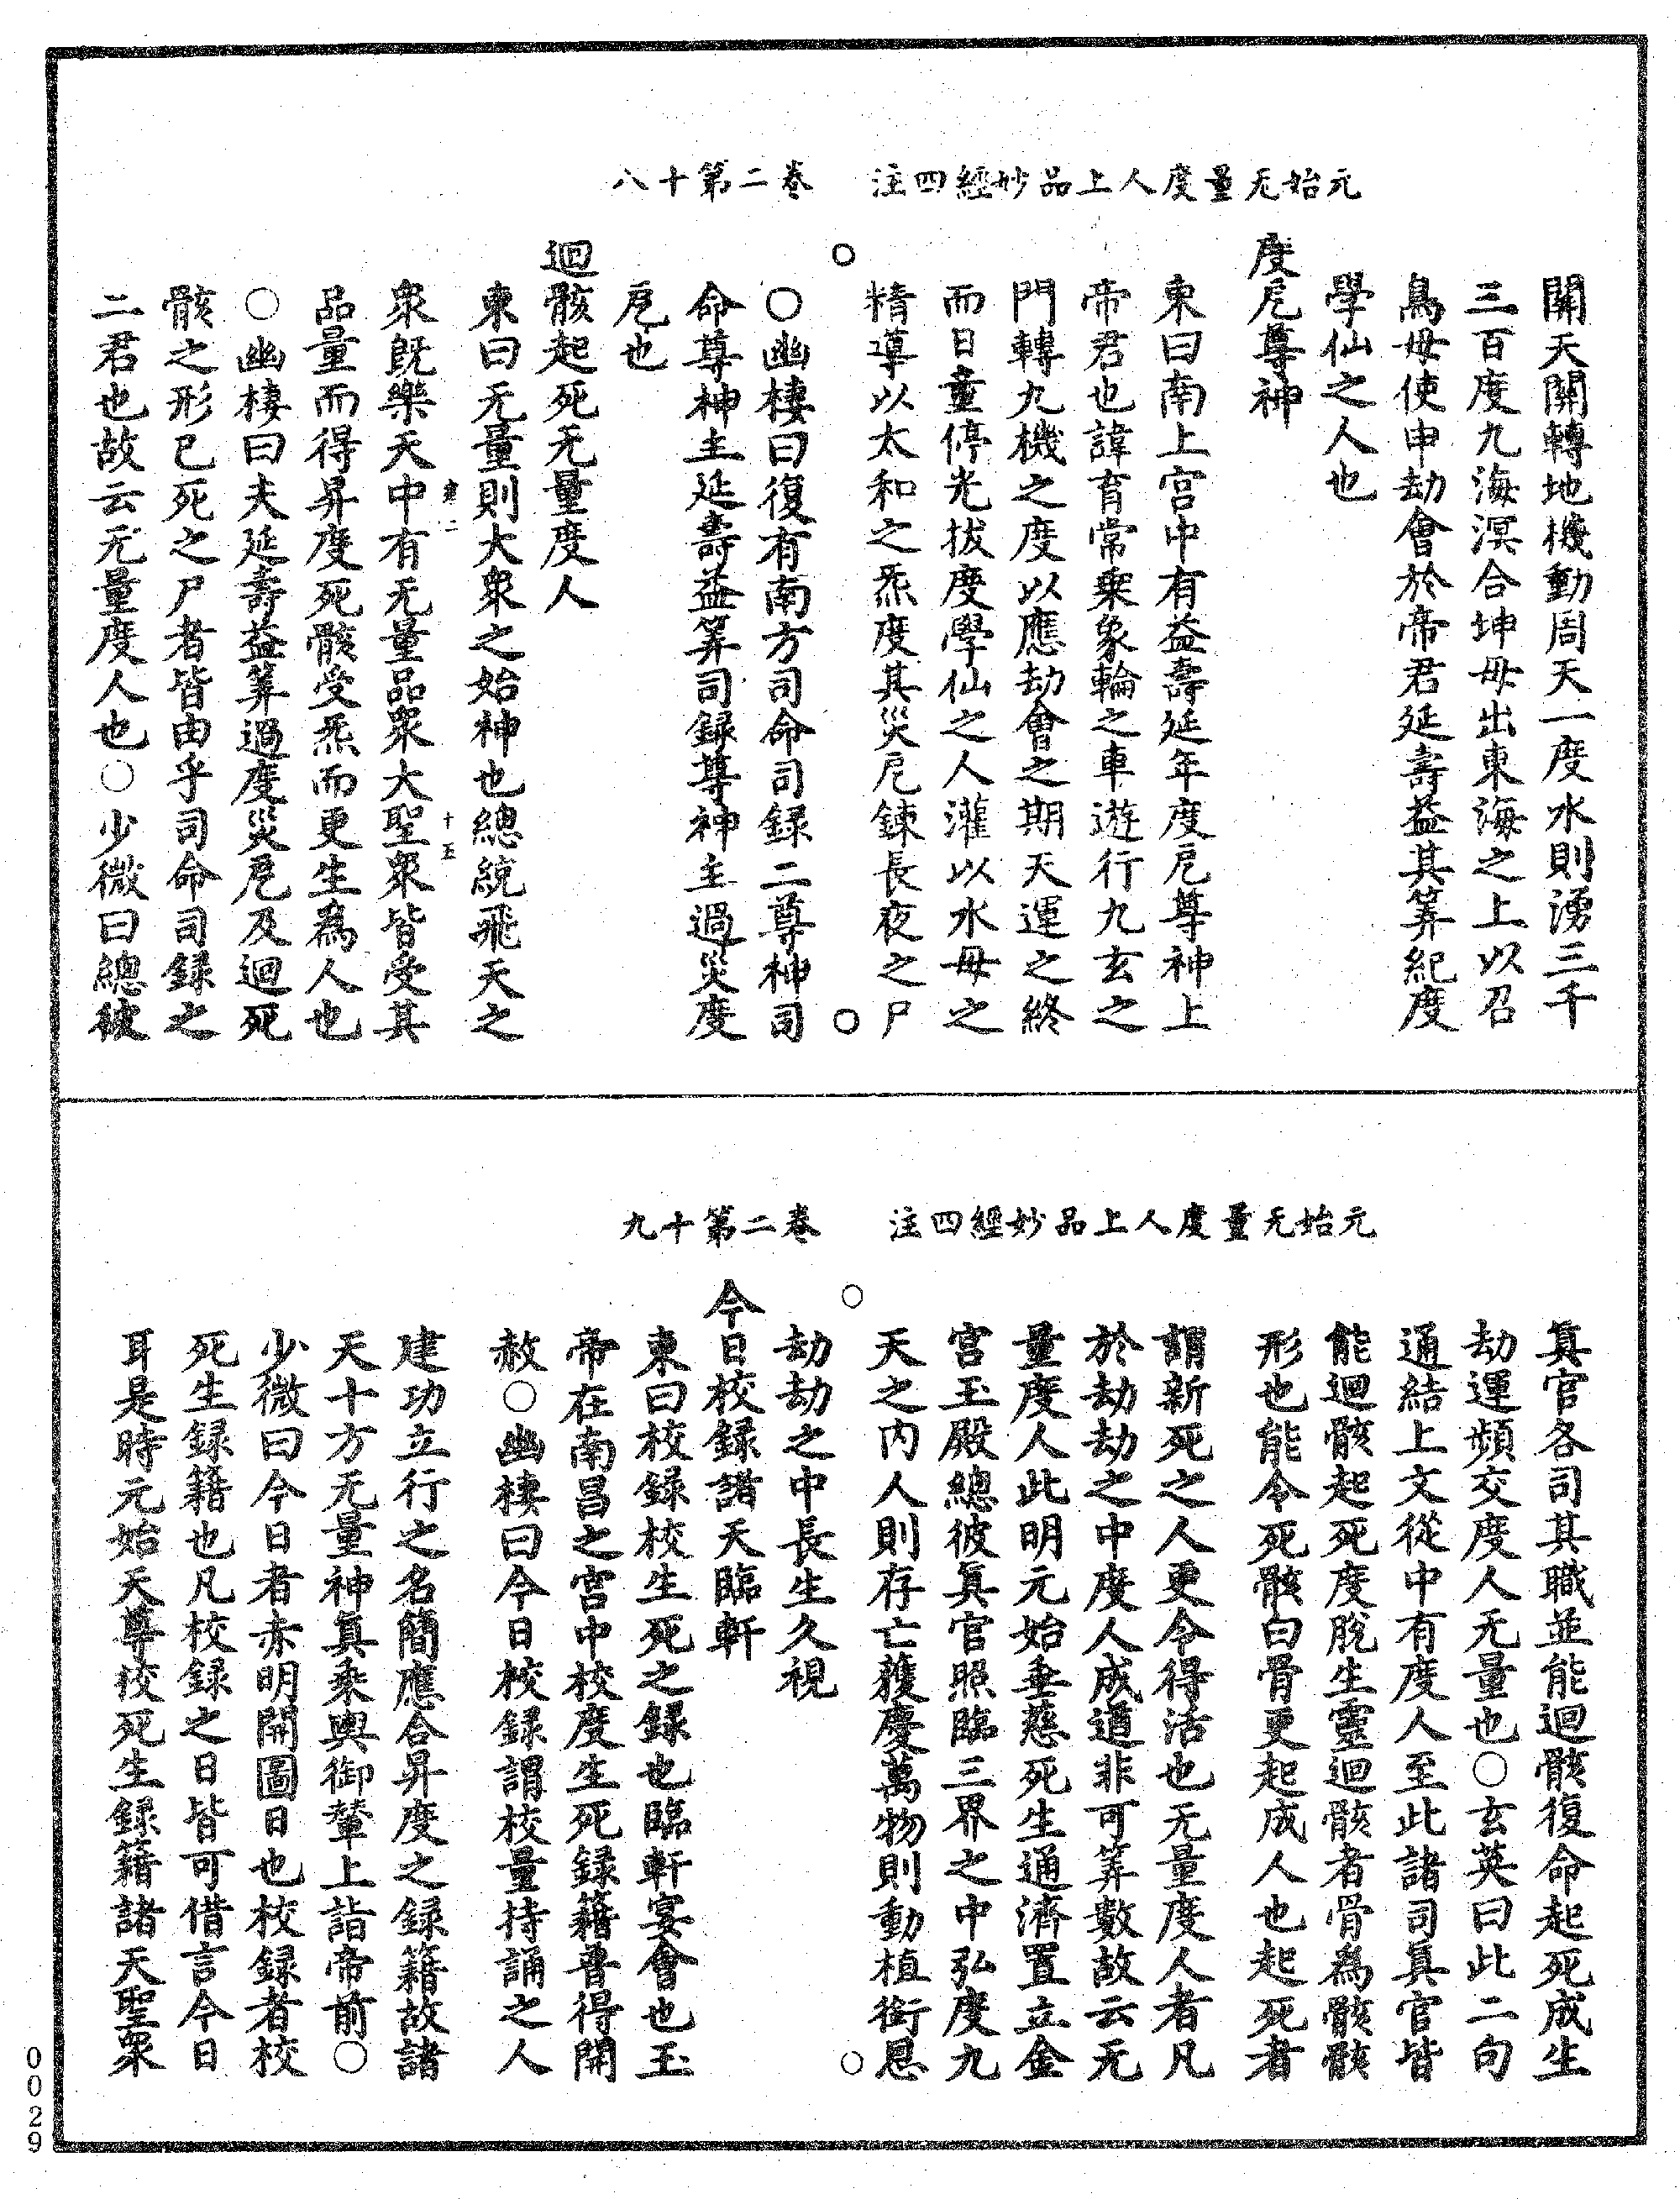 元始无量度人上品妙經四注　卷二第十八
關天關轉地機動周天一度水則湧三千
三百度九海溟合坤母出東海之上以召
鳥母使申劫會於帝君延壽益其筭紀度
學仙之人也
度厄尊神
東曰南上宮中有益壽延年度厄尊神上
帝君也諱育常乘象輪之車遊行九玄之
門轉九機之度以應劫會之期天運之終
而日童停光拔度學仙之人灌以水母之
精導以太和之炁度其災厄鍊長夜之尸
○幽棲曰復有南方司命司録二尊神司
命尊神主延壽益筭司録尊神主過災度
厄也
迴骸起死无量度人
東曰无量則大衆之始神也總統飛天之
衆旣樂天中有无量品衆大聖衆皆受其
品量而得昇度死骸受炁而更生為人也
○幽棲曰夫延壽益筭過度災厄及迴死
骸之形已死之尸者皆由乎司命司録之
二君也故云无量度人也○少微曰總彼
元始无量度人上品妙經四注　卷二第十九
眞官各司其職並能迴骸復命起死成生
劫運頻交度人无量也○玄英曰此二句
通結上文從中有度人至此諸司眞官皆
能迴骸起死度脫生靈迴骸者骨為骸骸
形也能令死骸白骨更起成人也起死者
謂新死之人更令得活也无量度人者凡
於劫劫之中度人成道非可筭數故云无
量度人此明元始垂慈死生通濟置立金
宮玉殿總彼眞官照臨三界之中弘度九
天之内人則存亡獲慶萬物則動植銜恩
劫劫之中長生久視
今日校録諸天臨軒
東曰校録校生死之録也臨軒宴會也玉
帝在南昌之宮中校度生死録籍普得開
赦○幽棲曰今日校録謂校量持誦之人
建功立行之名簡應合昇度之録籍故諸
天十方无量神眞乘輿御輦上詣帝前○
少微曰今日者赤明開圖日也校録者校
死生録籍也凡校録之日皆可借言今日
耳是時元始天尊校死生録籍諸天聖衆
0029